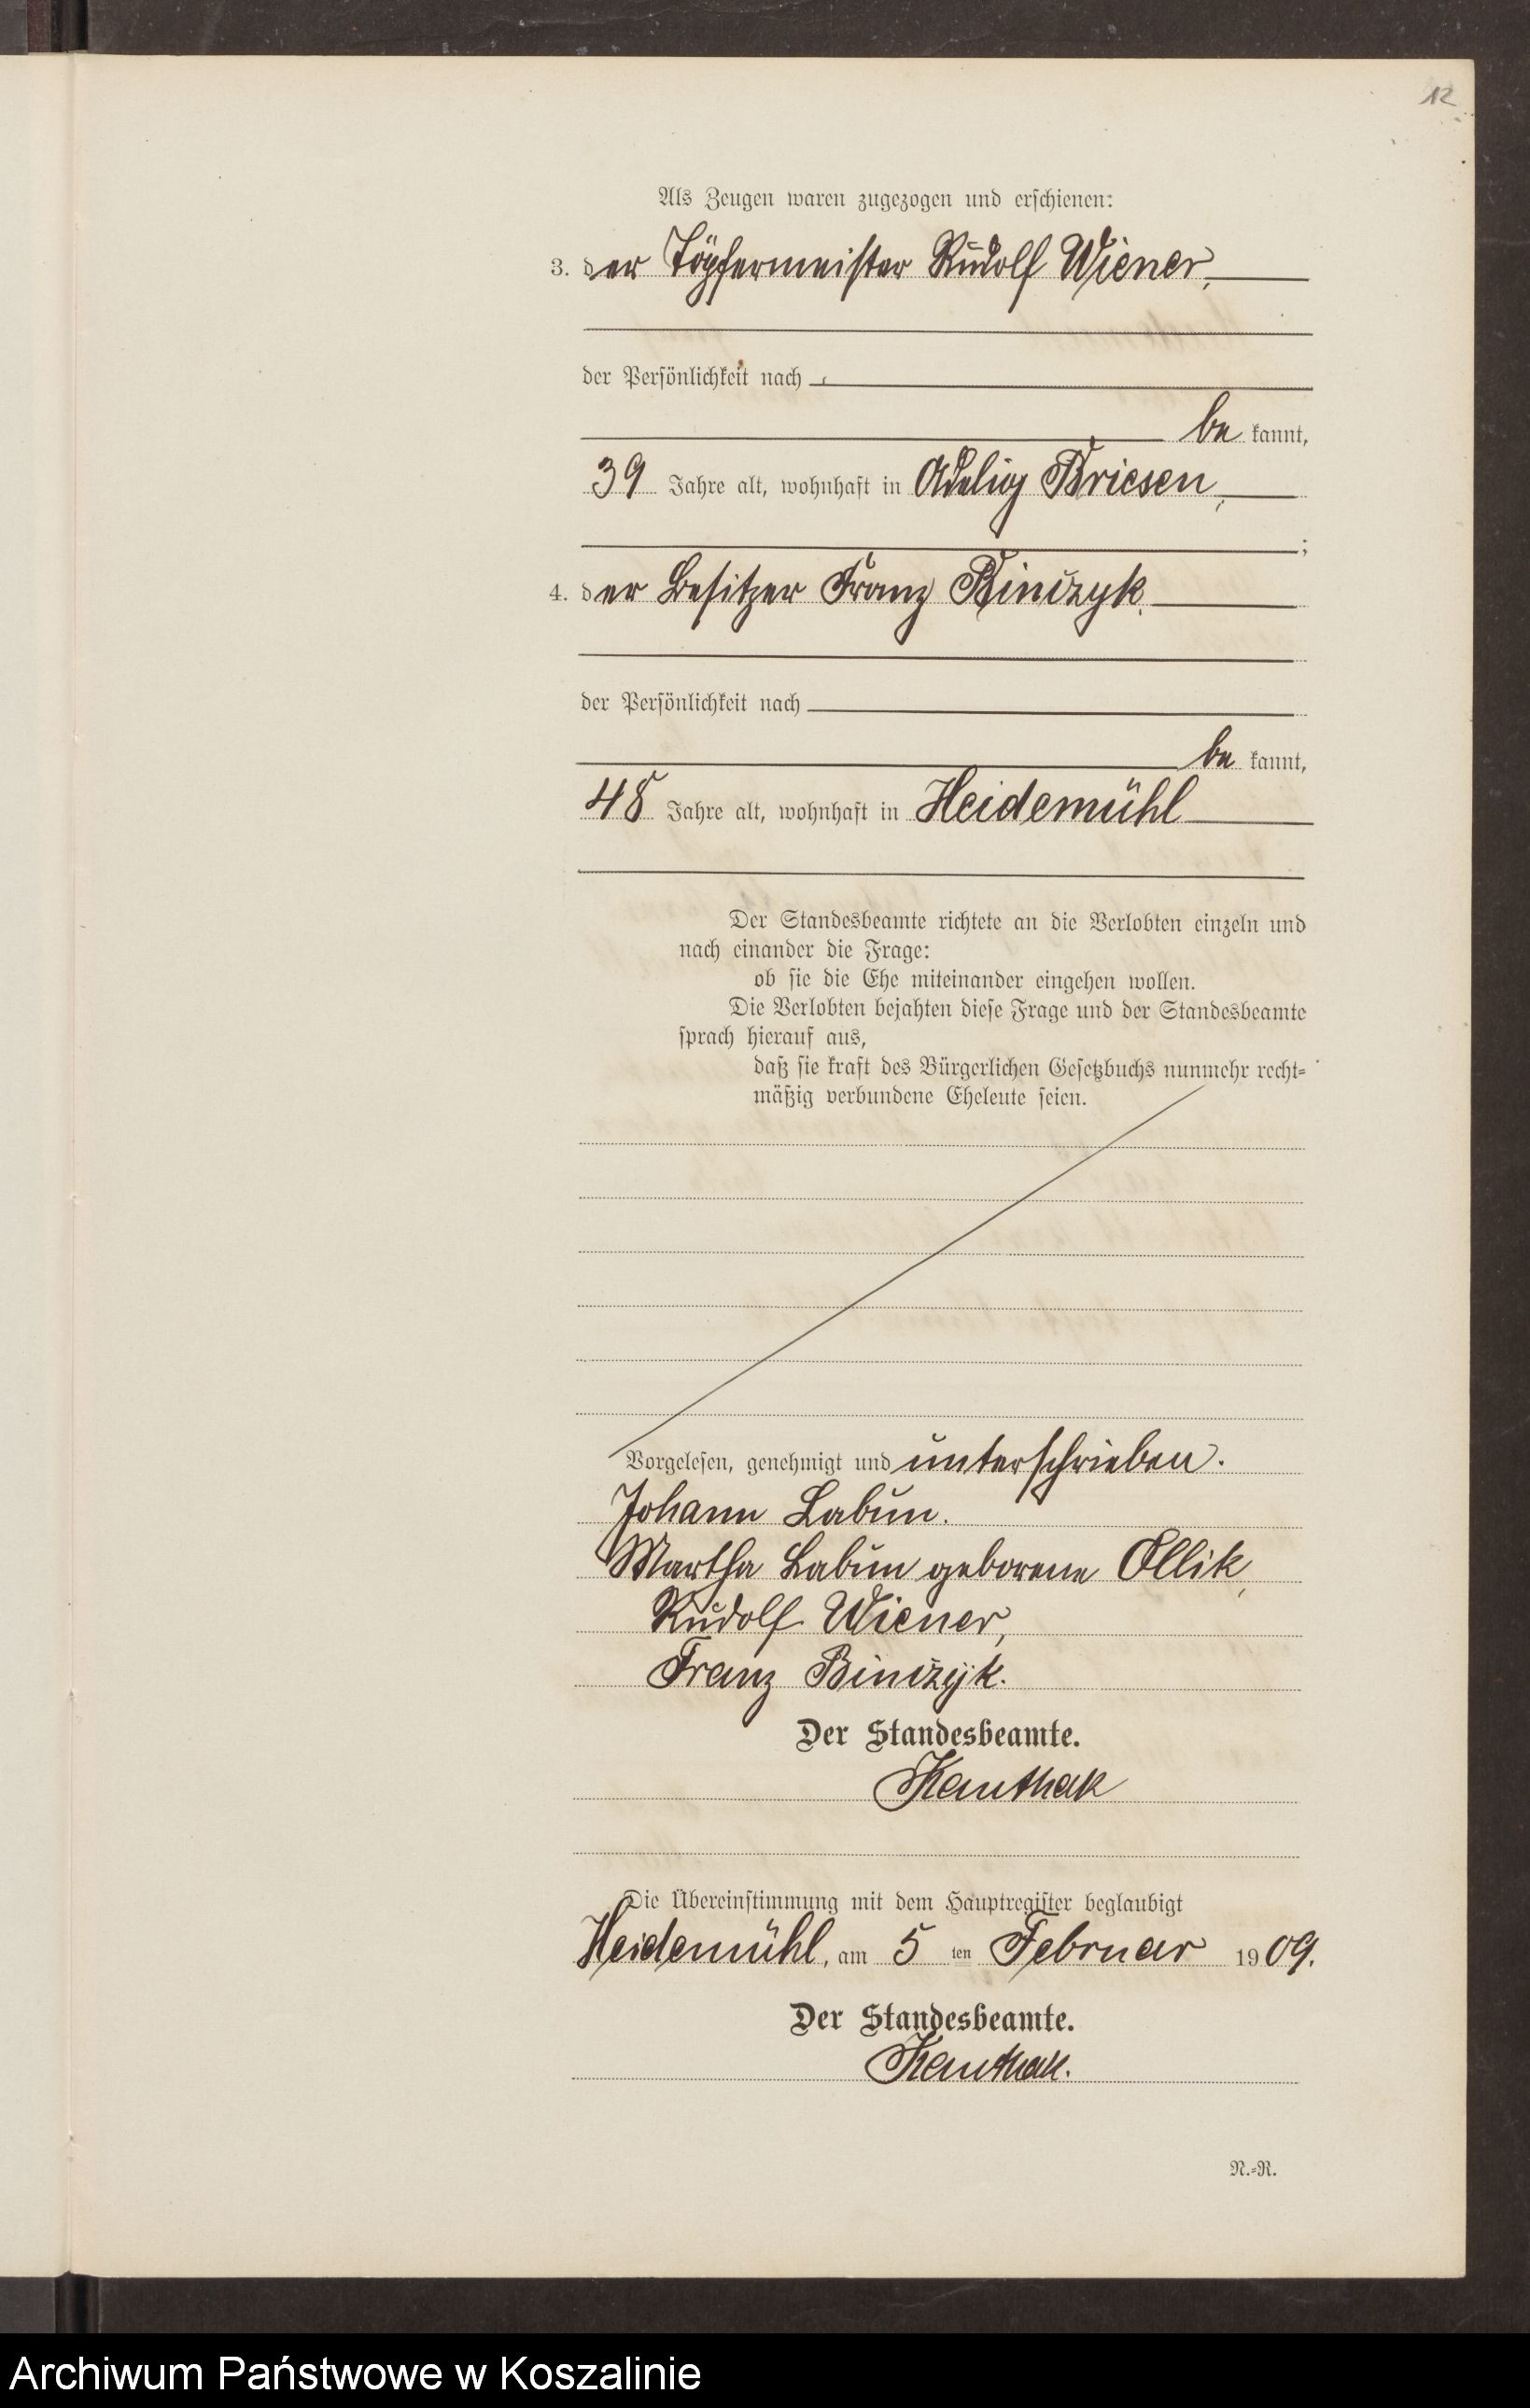 12
Als Zeugen waren zugezogen und erschienen:
3. der Töpfermeister Rudolf Wiener,
der Persönlichkeit nach
be kannt,
39 Jahre alt, wohnhaft in Adelig Briesen,
;
4. der Besitzer Franz Binczyk,
der Persönlichkeit nach
be kannt,
48 Jahre alt, wohnhaft in Heidemühl
Der Standesbeamte richtete an die Verlobten einzeln und
nach einander die Frage:
ob sie die Ehe miteinander eingehen wollen.
Die Verlobten bejahten diese Frage und der Standesbeamte
sprach hierauf aus,
daß sie kraft des Bürgerlichen Gesetzbuchs nunmehr recht-
mäßig verbundene Eheleute seien.
Vorgelesen, genehmigt und unterschrieben.
Johann Labun.
Martha Labun geborene Ollik,
Rudolf Wiener,
Franz Binczyk.
Der Standesbeamte.
Kauthak
Die Übereinstimmung mit dem Hauptregister beglaubigt
Heidemühl, am 5 ten Februar 1909.
Der Standesbeamte.
Kauthak.
N.-R.
Archiwum Państwowe w Koszalinie